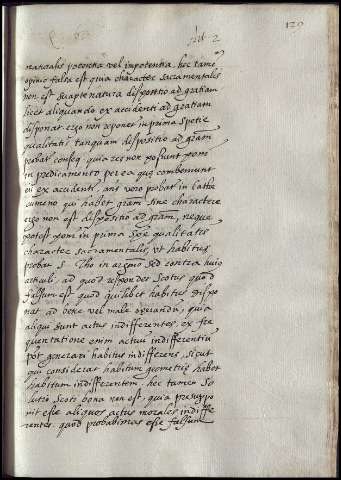 120
naturalis potentia vel impotentia, hec tamē
opinio falsa est quia character sacramentalis
non est suapte natura dispositio ad gratiam
licet aliquando ex accidenti ad gratiam
disponat ergo non reponetur in prima specie
qualitatis tanquam dispositio ad gram̄
probat conseq. quia res non possunt poni
in predicamento per ea que conveniunt
eis ex accidenti, ans vero probat in cathe
cumeno qui habet gram̄ sine charactere
ergo non est dispositio ad gram̄, neque
potest poni in prima spē qualitatis
character sacramentalis, ut habitus
probat s. Tho in arḡto sed contra huius
articuli, ad quod respondet Scotus quod
falsum est quod quilibet habitus dispo
nat ad bene vel male operandū, quia
aliqui sunt actus indifferentes, ex fre
quentatione enim actuū indifferentiū
pōt generari habitus indifferens, sicut
qui considerat habitum geometrię habet
habitum indifferentem, hec tamen so
lutio Scoti bona non est, quia presuppo
nit esse aliquos actus morales indiffe
rentes, quod probabimus esse falsum